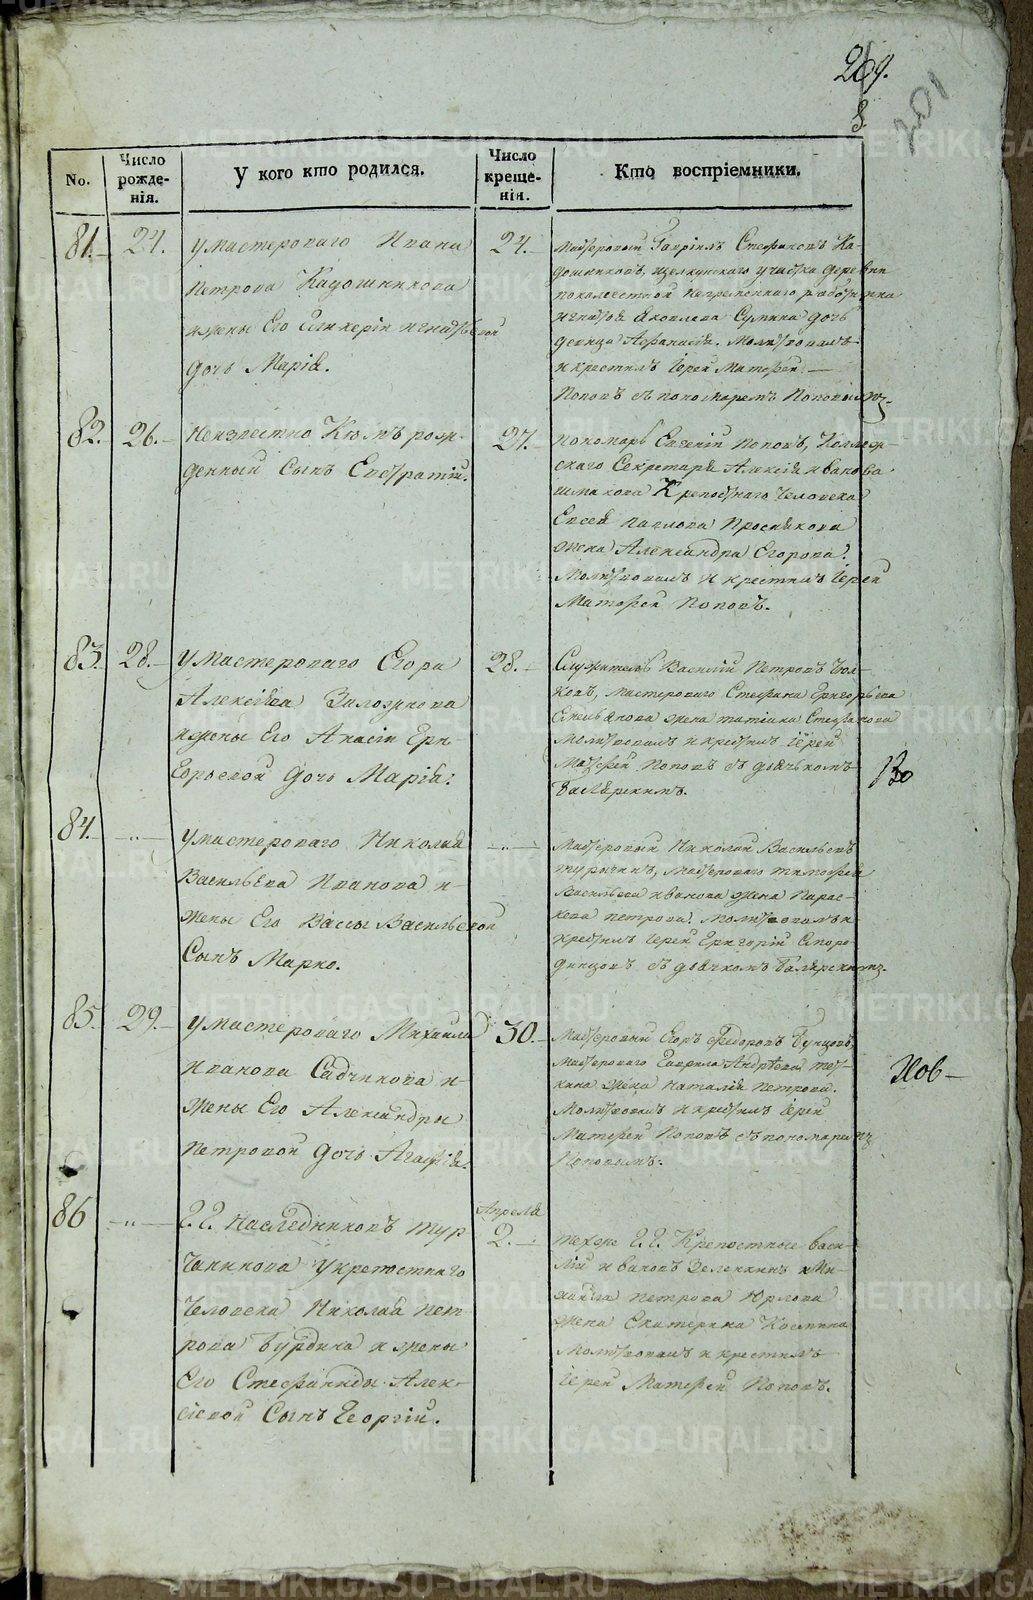 269.
8
201
No.
Число рожде-нія.
У кого кто родился.
Число креще-нія.
Кто воспріемники.
81.
24.
У Мастероваго Ивана
Петрова Кадошникова
и жены Его Гликеріи Игнатьевой
дочь Марія.
24.
Мастеровый Гавріилъ Стефановъ Ка-
дошниковъ, Щелкунскаго участка деревни
непременнаго работника
Игнатія Яковлева Сумина дочь
девица Афанасія. Молитвовалъ
и крестилъ Іерей Матфей
Поповъ съ пономаремъ Поповымъ.
82.
26.
Неизвестно Кемъ рож-
денный Сынъ Евстратій.
27.
Пономарь Евгеній Поповъ, Коллеж-
скаго Секретаря Алексія Иванова
Крепостнаго Человека
Евсея Павлова Проснякова
жена Александра Егорова.
Молитвовалъ и крестилъ Іерей
Матфей Поповъ.
83.
28.
У Мастероваго Егора
Алексіева
и жены Его Анасіи Гри-
горьевой дочь Марія.
28.
Служитель Василій Петровъ
ковъ, Мастероваго Стефана Григорьева
жена Татіана Стефанова
Молитвовалъ и крестилъ Іерей
Матфей Поповъ съ дьячкомъ
Баляренимъ.
84.
У мастероваго Николая
Васильева Иванова и
жены Его Вассы Васильевой
Сынъ Марко.
Мастеровый Николай Васильевъ
Мастероваго Тимофея
Васильева Иванова жена Парас-
кева Петрова. Молитвовалъ и
крестилъ Іерей Григорій Сморо-
динцовъ съ дьячкомъ
85.
29.
У мастероваго Михаила
Иванова Садчикова и
жены Его Александры
Петровой дочь Агафія.
30.
Мастеровый Егоръ Федоровъ Бунцовъ,
Мастероваго Гаврила Андреева
жена Наталія Петрова.
Молитвовалъ и крестилъ Іерей
Матфей Поповъ съ пономаремъ
Поповымъ.
86
Г.Г. Наследниковъ Тур
чанинова у крепостнаго
Человека Николая Пет-
рова Бурдина и жены
Его Стефаниды Алек-
сіевой Сынъ Георгій.
Апреля
2.
Техже Г.Г. Крепостные Васи-
лій Ивановъ Зеленкинъ и Ми-
хаила Петрова Юрлова
жена Екатерина Космина
Молитвовалъ и крестилъ
Іерей Матфей Поповъ.
METRIKI.GASO-URAL.RU